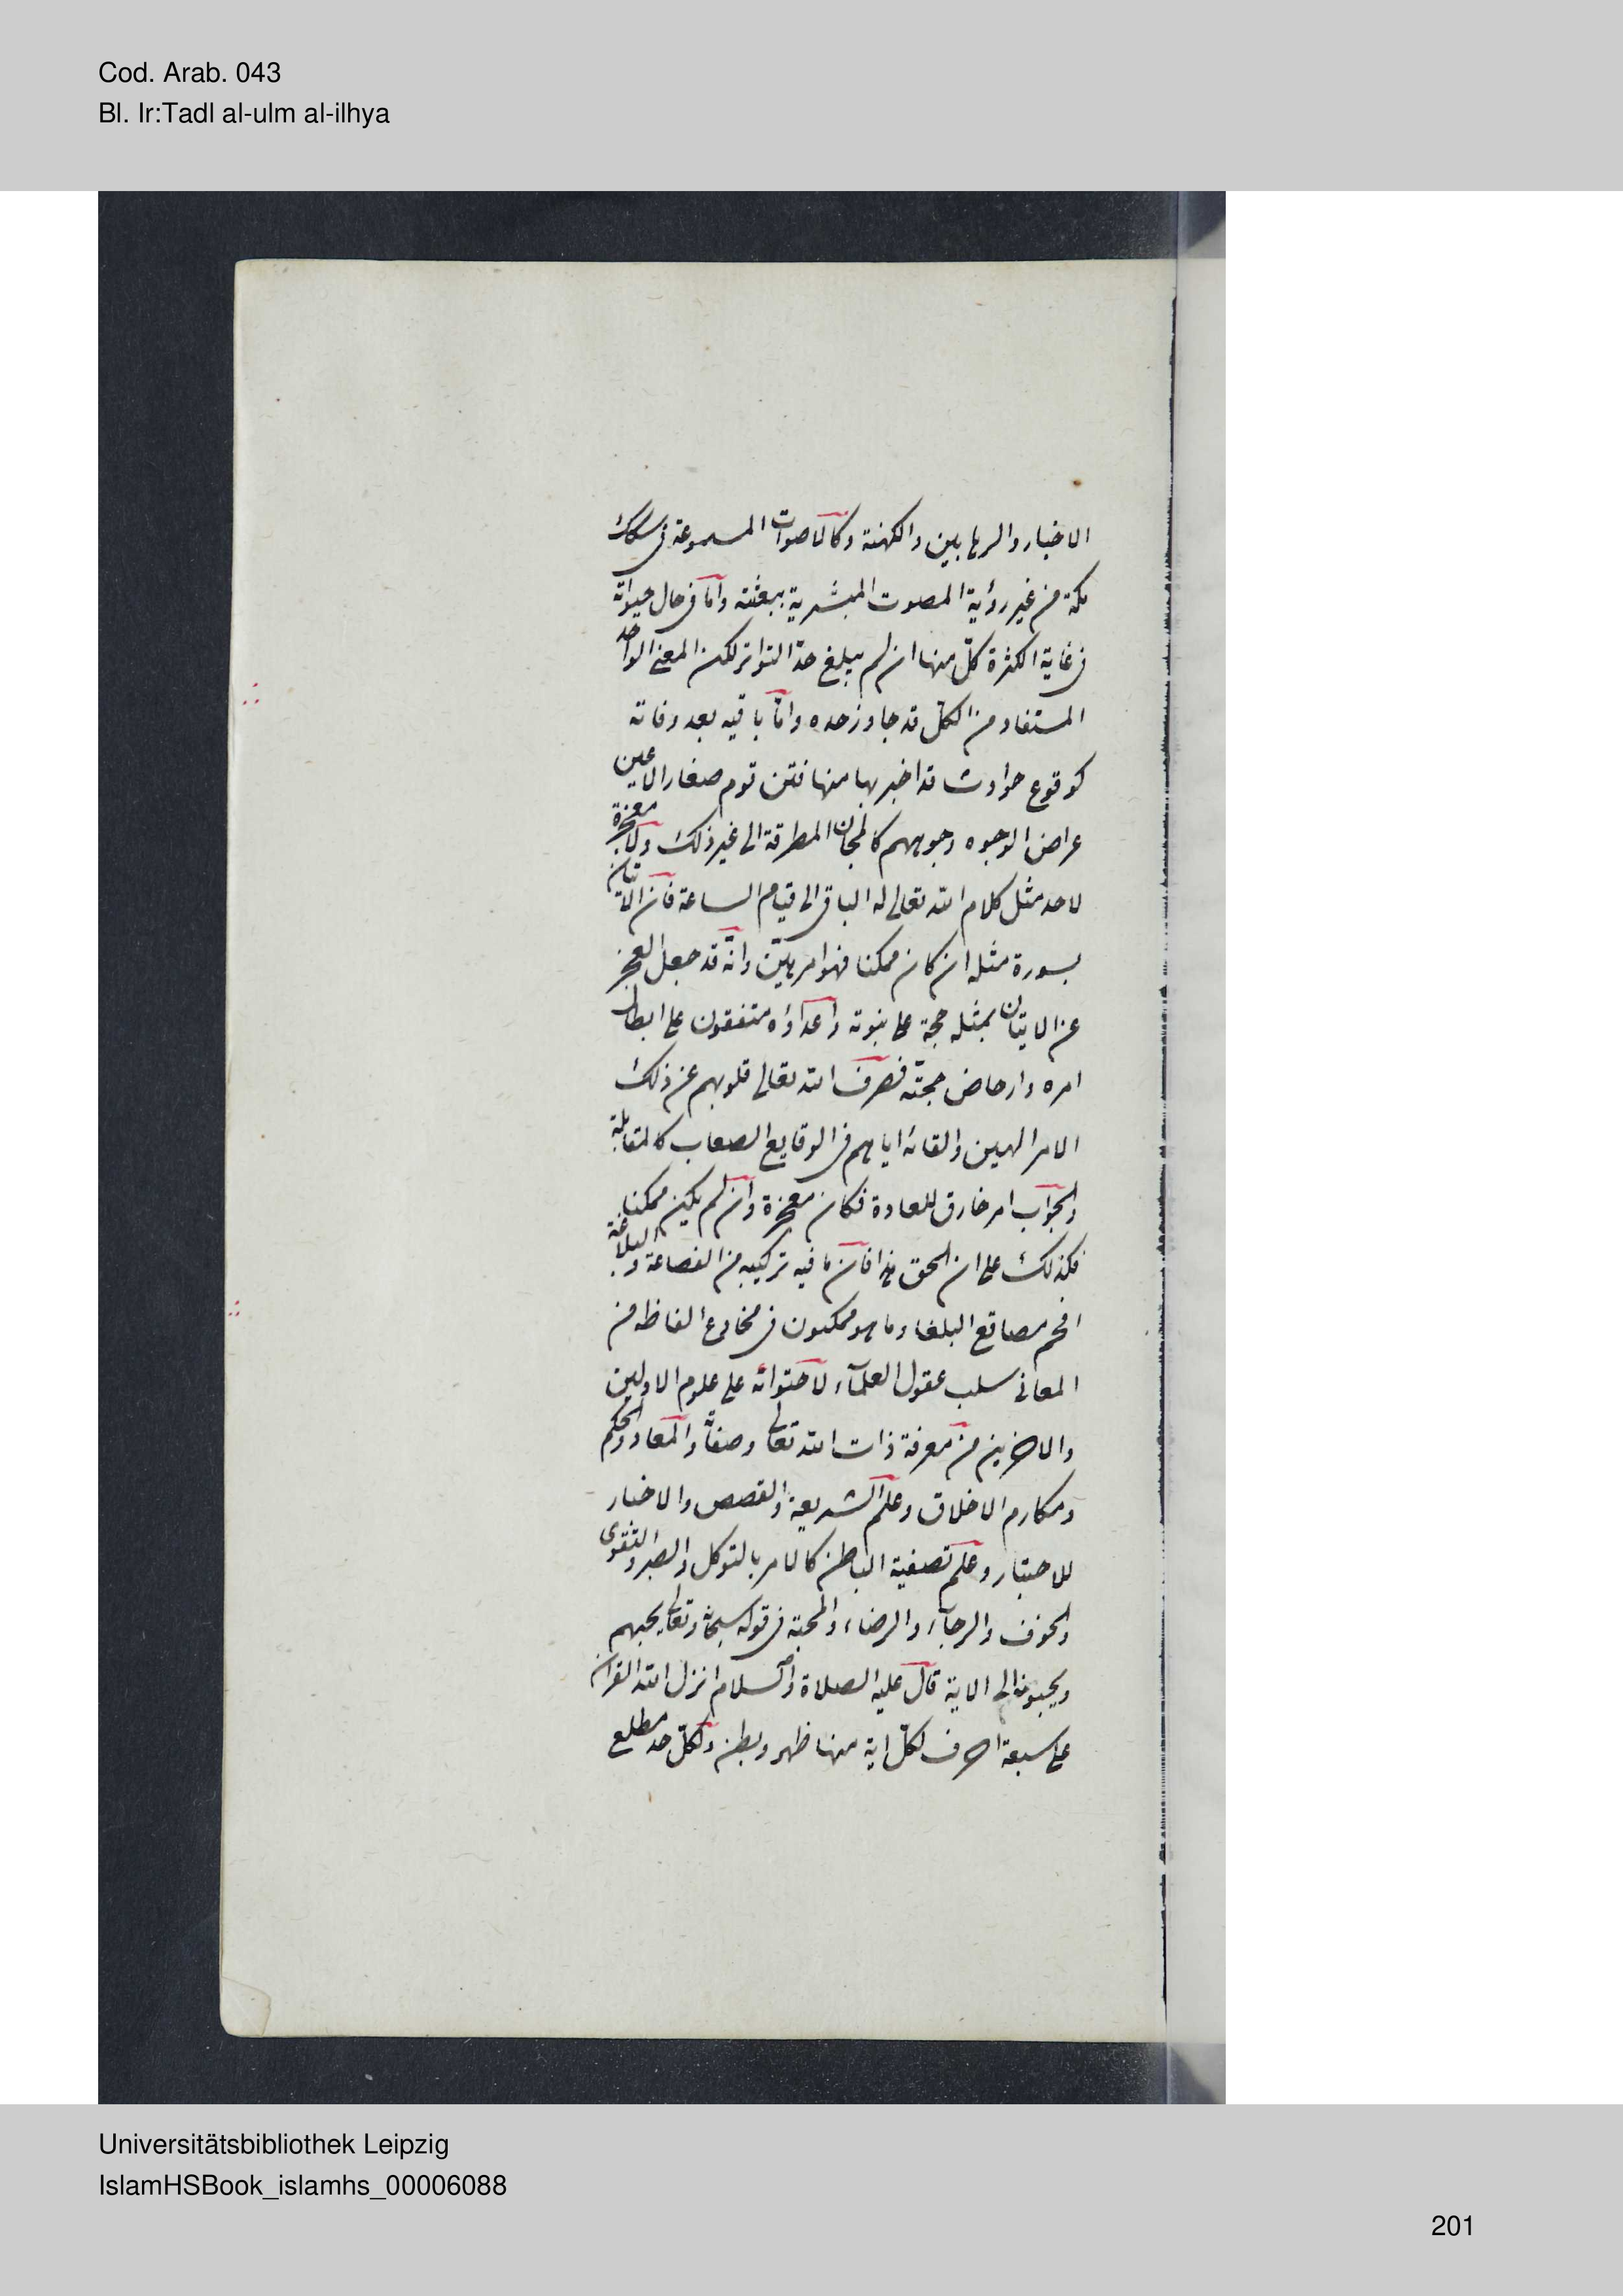 Cod. Arab. 043
Bl. Ir:Tadl al-ulm al-ilhya
الاخبار والرهابين والكهنة وكالاصوات المسموعة فى سكك
مكة من غير رؤية المصوت المبشرية ببعثته واما فى حال حيوته
فى غاية الكثرة كل منها ان لم يبلغ حد التواتر لكن المعنى الواحد
المستفاد من الكل قد جاوز حده واما باقيه بعد وفاته
كوقوع حوادث قد اخبر بها منها فتن قوم صغار الاعين
عراض الوجوه وجوههم كالمجان المطرقة الى غير ذلك ولا معجزة
لاحد مثل كلام الله تعالى له الباقى الى قيام الساعة فان الاتيان
بسورة مثله ان كان ممكنا فهو امر هين وانه قد جعل العجز
عن الايتان بمثله حجة على نبوته واعداؤه متفقون على ابطال
امره وارحاض حجته فصرف الله تعالى قلوبهم عن ذلك
الامر الهين والقائه اياهم فى الوقايع الصعاب كالمقابلة
والجواب امر خارق للعادة فكان معجزة وان لم يكن ممكنا
فكذلك على ان الحق هذا فان ما فيه تركيبه من الفصاحة والبلاغة
افحم مصاقع البلغاء وما هو مكنون فى مخادع الفاظه من
المعانى سلب عقول العلماء لاحتوائه على علوم الاولين
والاخرين من معرفة ذات الله تعالى وصفاته والمعاد والحكم
ومكارم الاخلاق وعلم الشريعة والقصص والاخبار
للاعتبار وعلم تصفية الباطن كالامر بالتوكل والصبر والتقوى
والخوف والرجاء والرضاء والمحبة فى قوله سبحانه وتعالى يحبهم
ويحبونه الى الاية قال عليه الصلاة والسلام انزل الله القران
على سبعة احرف لكل اية منها ظهر وبطن ولكل حد مطلع
Universitätsbibliothek Leipzig
IslamHSBook_islamhs_00006088
201